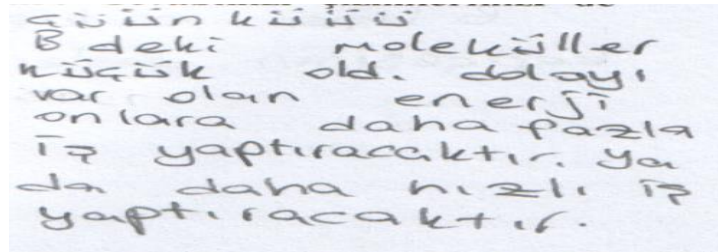 Çünkü
B deki moleküller
küçük old. dolayı
var olan enerji
onlara daha fazla
iş yaptıracaktır. Ya
da daha hızlı iş
yaptıracaktır.